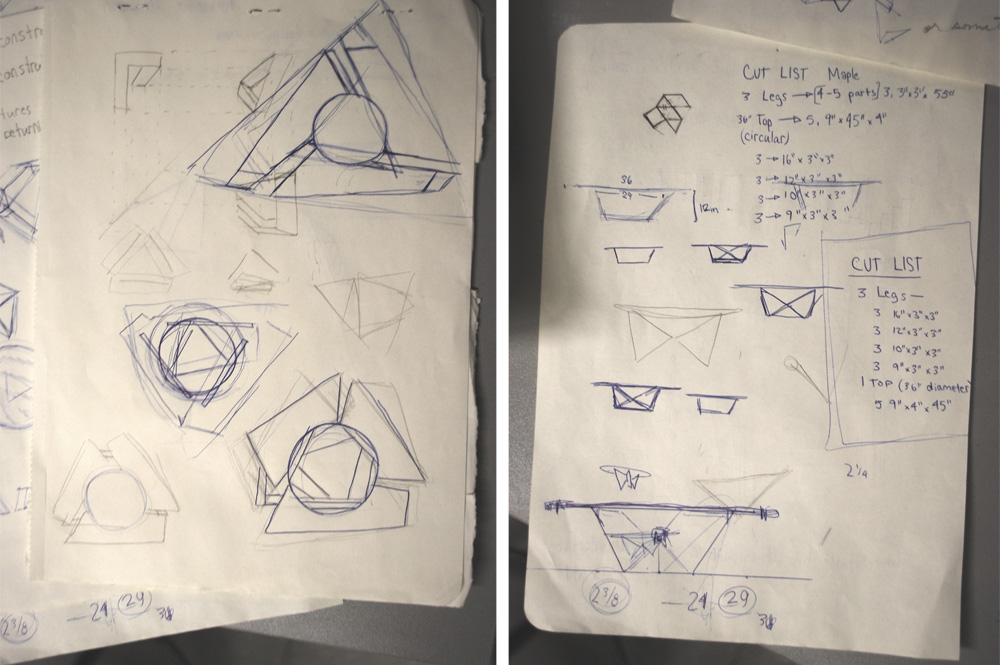 constr
constru
tures
return
2 3/8
-24
29
36
or some
CUT LIST Maple
3 Legs → [4-5 parts] 3, 3"x3"x 55"
36" Top → 5, 9"x 45"x 4"
(circular)
3 → 16"x 3"x3"
3 → 12"x 3"x3"
3 → 10"x3"x3"
3 → 9"x3"x3"
36
29
12in
CUT LIST
3 Legs —
3 16"x3"x3"
3 12"x3"x3"
3 10"x3"x3"
3 9"x3"x3"
1 TOP (36" diameter
5 9"x4"x45"
2 1/4
2 3/8
-24
29
36